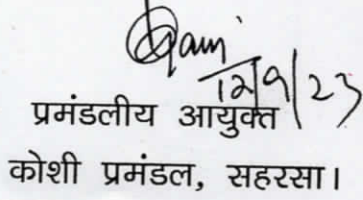 12/9/23
प्रमंडलीय आयुक्त
कोशी प्रमंडल, सहरसा।